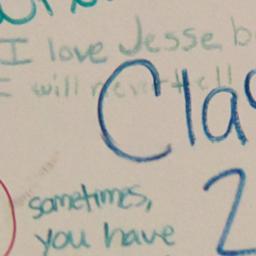 I love Jesse b
I will never tell
Cla
sometimes,
you have
2